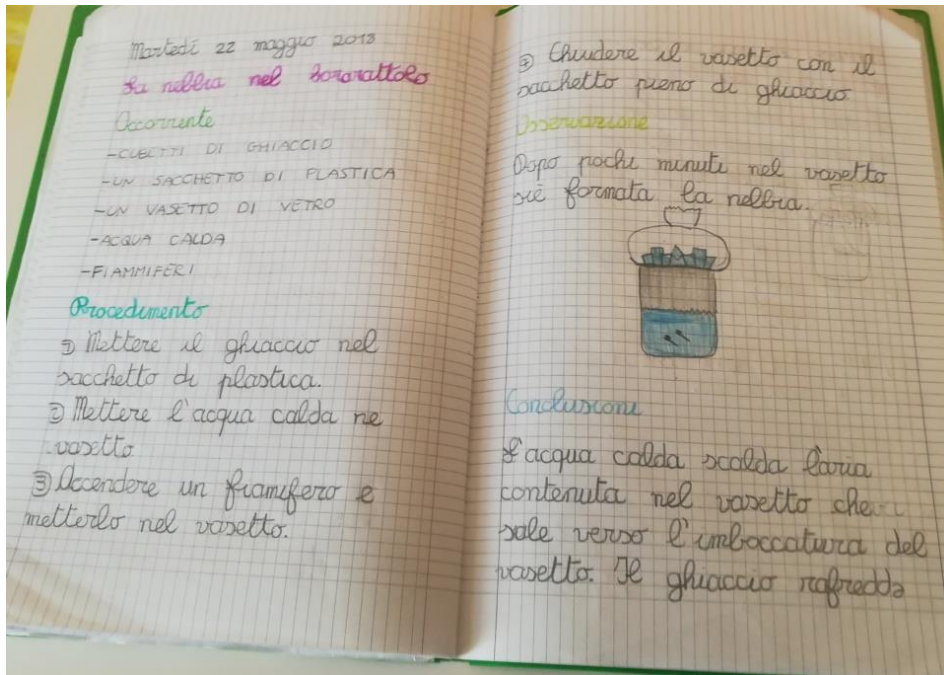 Martedì 22 maggio 2018
La nebbia nel bararattolo
Occorrente
-CUBETTI DI GHIACCIO
-UN SACCHETTO DI PLASTICA
-UN VASETTO DI VETRO
-ACQUA CALDA
-FIAMMIFERI
Procedimento
① Mettere il ghiaccio nel
sacchetto di plastica.
② Mettere l'acqua calda ne
vasetto
③ Accendere un fiamifero e
metterlo nel vasetto.
④ Chiudere il vasetto con il
sacchetto pieno di ghiaccio.
Osservazione
Dopo pochi minuti nel vasetto
siè formata la nebbia.
Conclusioni
L'acqua calda scalda l'aria
contenuta nel vasetto che
sale verso l'imboccatura del
vasetto. Il ghiaccio rafredda